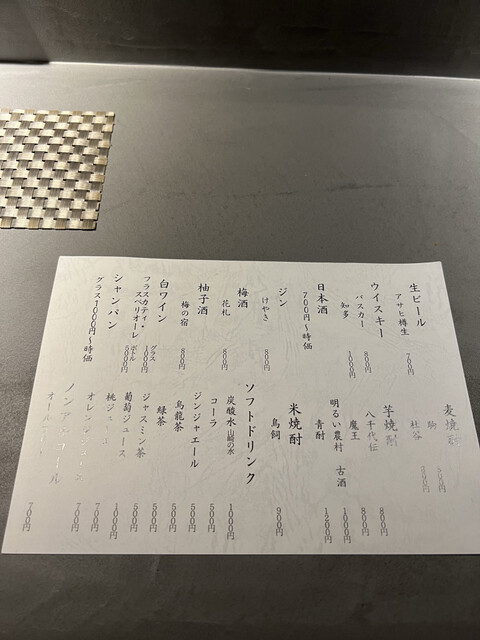 生ビール
アサヒ樽生 700円
ウイスキー
バスカー 800円
知多 1000円
日本酒
700円〜時価
ジン
けやき 800円
梅酒
花札 800円
柚子酒
梅の宿 800円
白ワイン
フラスカティ・スペリオーレ
グラス 1000円
ボトル 5000円
シャンパン
グラス1000円〜時価
麦焼酎
駒
杜谷
芋焼酎
八千代伝 800円
魔王 800円
明るい農村 古酒 1000円
青酎 1200円
米焼酎
鳥飼 900円
ソフトドリンク
炭酸水 山崎の水 1000円
コーラ 500円
ジンジャエール 500円
烏龍茶 500円
緑茶 500円
ジャスミン茶 500円
葡萄ジュース 1000円
桃ジュ 700円
オレン 700円
ノンア ール
オール 700円